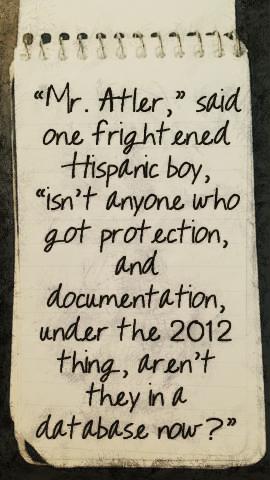 “Mr. Atler,” said
one frightened
Hispanic boy,
“isn't anyone who
got protection,
and
documentation,
under the 2012
thing, aren't
they in a
database now?”